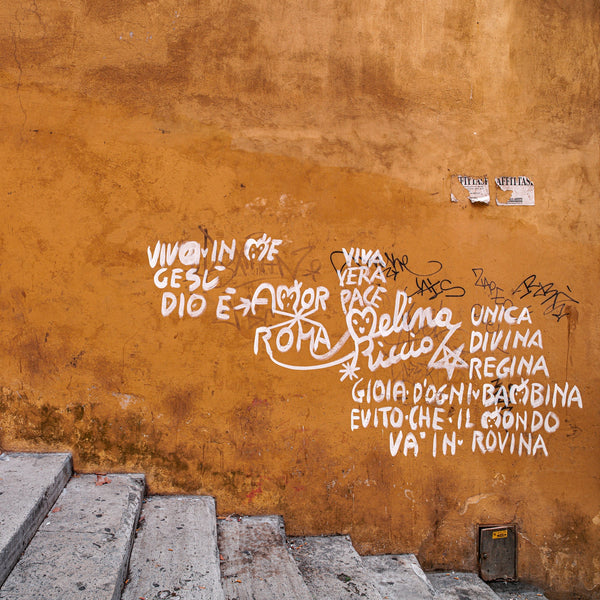 AFFITTASI
VIVO·IN ME
GESÙ
DIO È
AMOR
ROMA
VIVA
VERA
PACE
Melina
Riccio
UNICA
DIVINA
REGINA
GIOIA·D'OGNI·BAMBINA
EVITO·CHE·IL MONDO
VA' IN·ROVINA